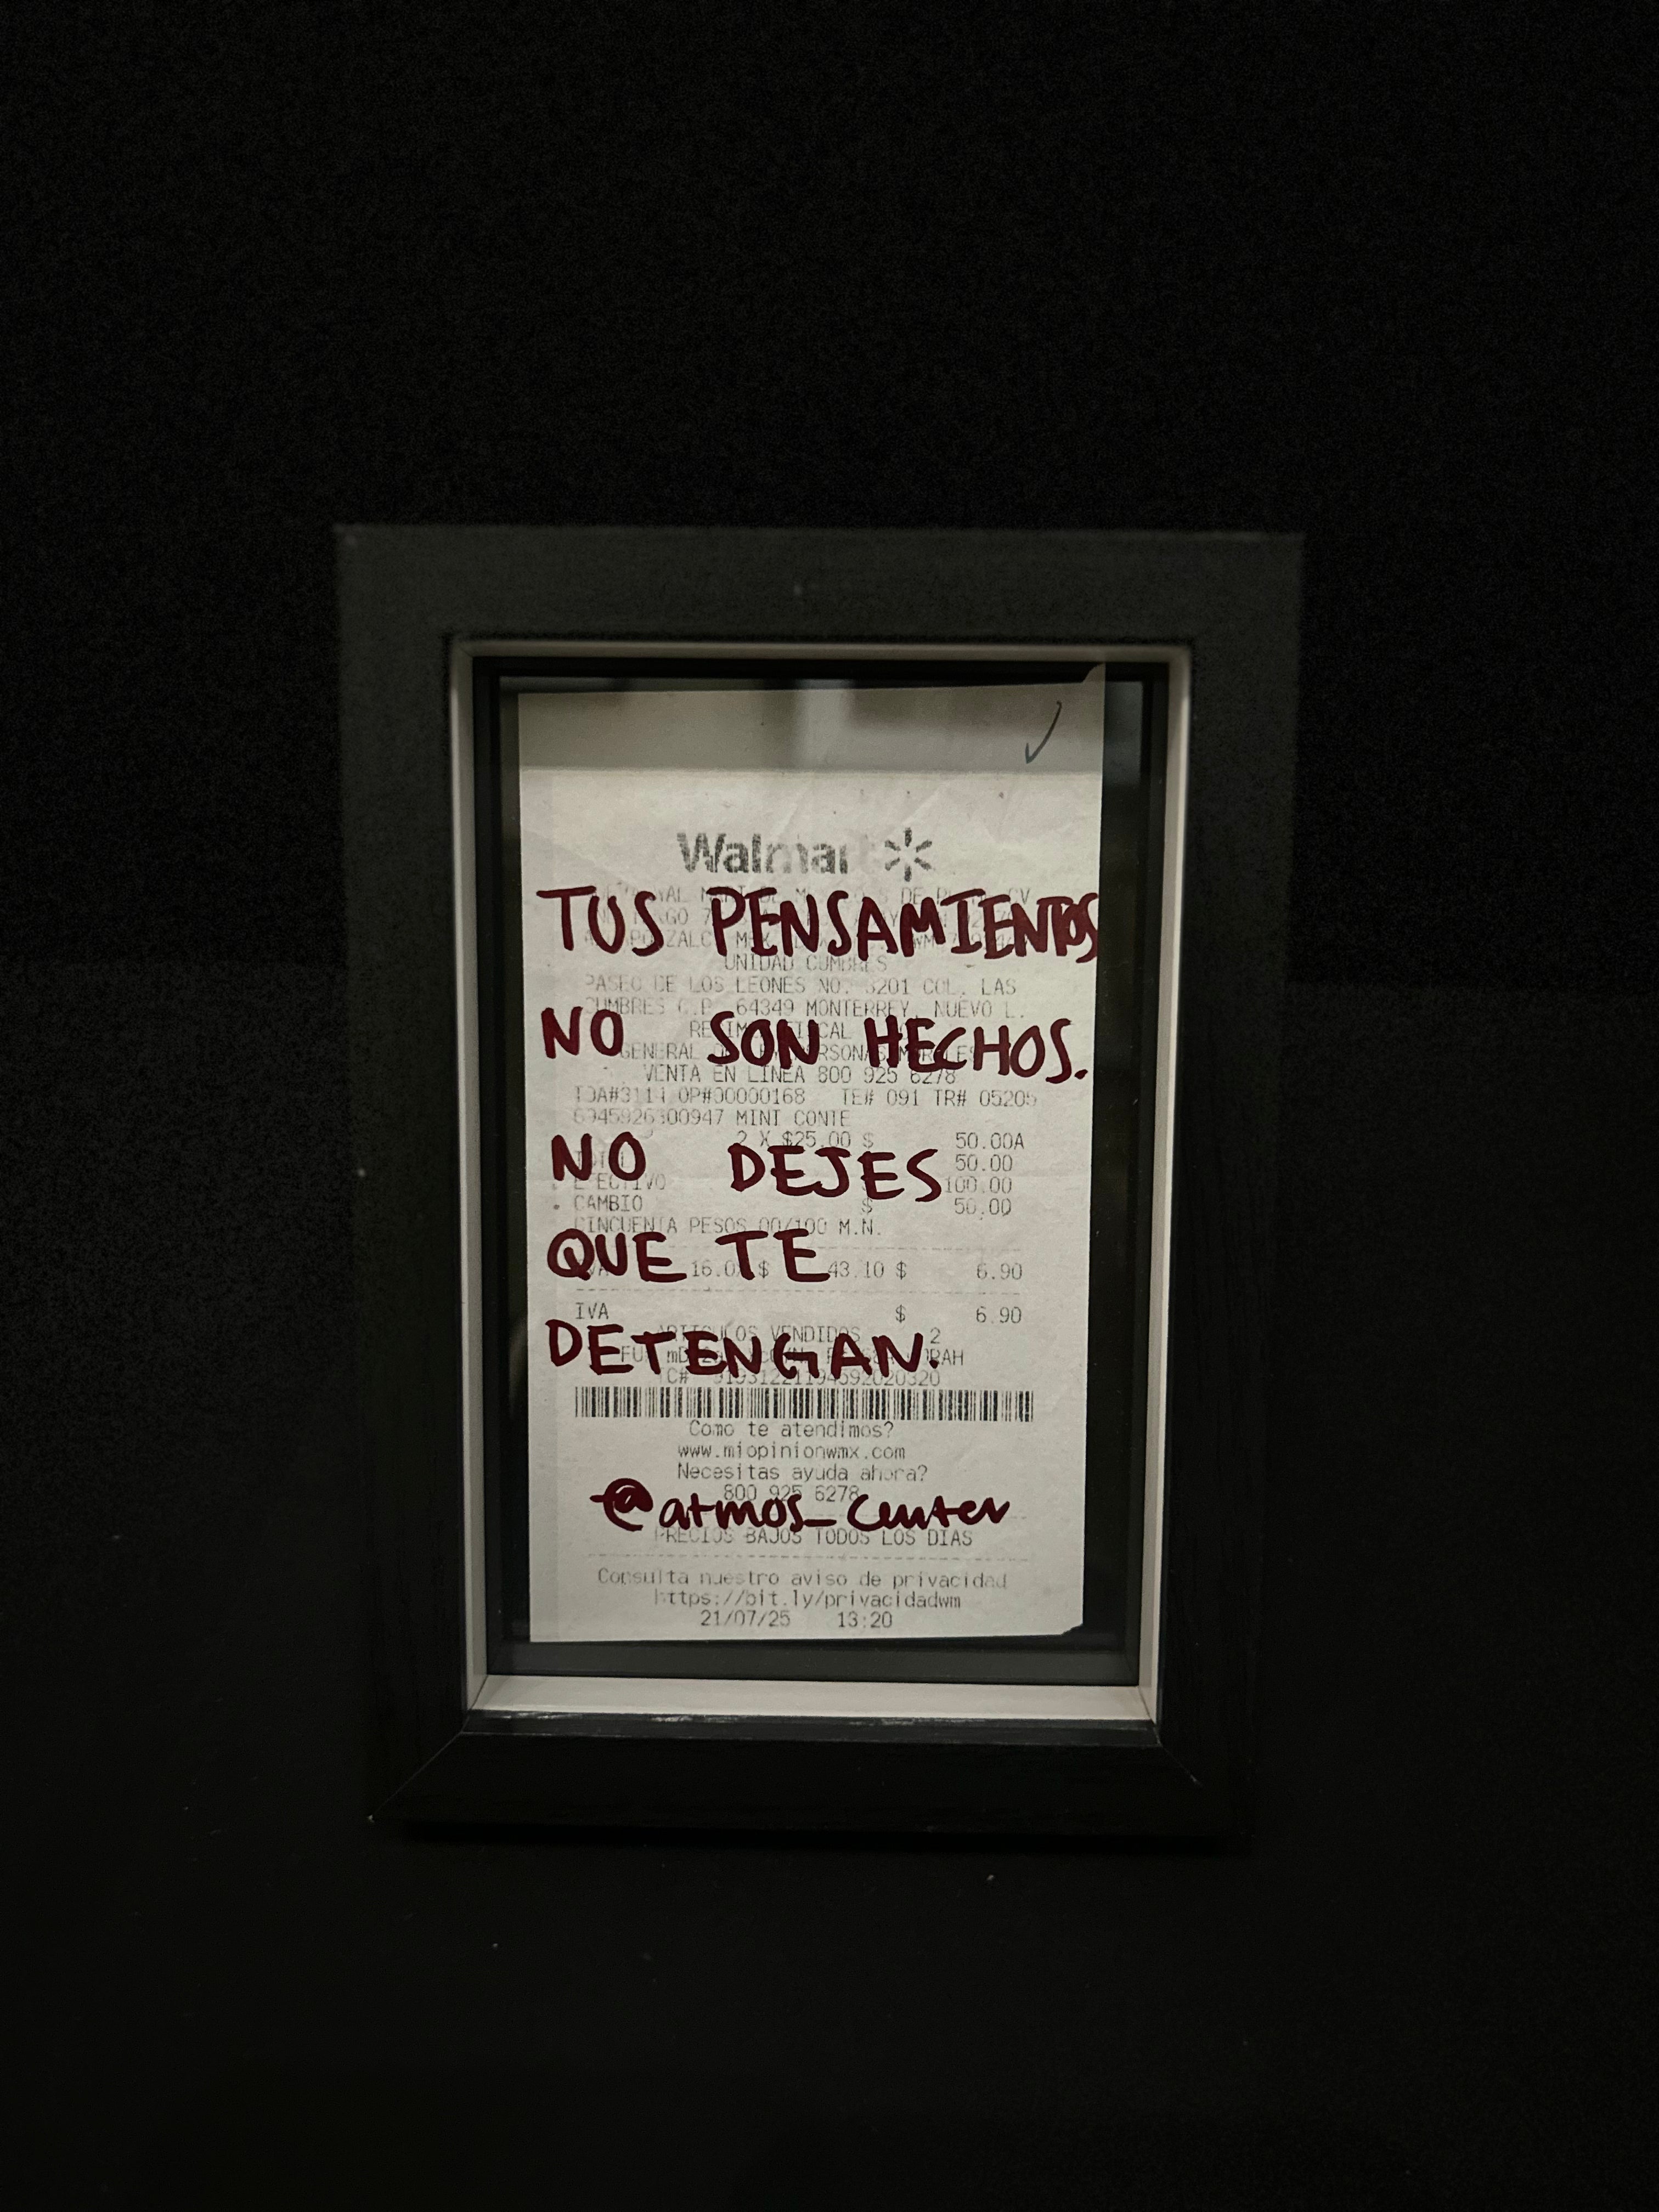 Walmart
TUS PENSAMIENTOS
UNIDAD CUMBRES
PASEO DE LOS LEONES NO. 3201 COL. LAS
CUMBRES C.P. 64349 MONTERREY, NUEVO L.
NO SON HECHOS.
GENERAL
VENTA EN LINEA 800 925 6278
TDA#3114 OP#00000168 TE# 091 TR# 05205
MINI CONTE
2 X $25.00 $ 50.00A
NO DEJES
50.00
EFECTIVO 100.00
CAMBIO $ 50.00
CINCUENTA PESOS 00/100 M.N.
QUE TE
16.0 $ 43.10 $ 6.90
IVA $ 6.90
ARTICULOS VENDIDOS 2
DETENGAN.
TC#
Como te atendimos?
www.miopinionwmx.com
Necesitas ayuda ahora?
800 925 6278
@atmos_center
PRECIOS BAJOS TODOS LOS DIAS
Consulta nuestro aviso de privacidad
https://bit.ly/privacidadwm
21/07/25 13:20